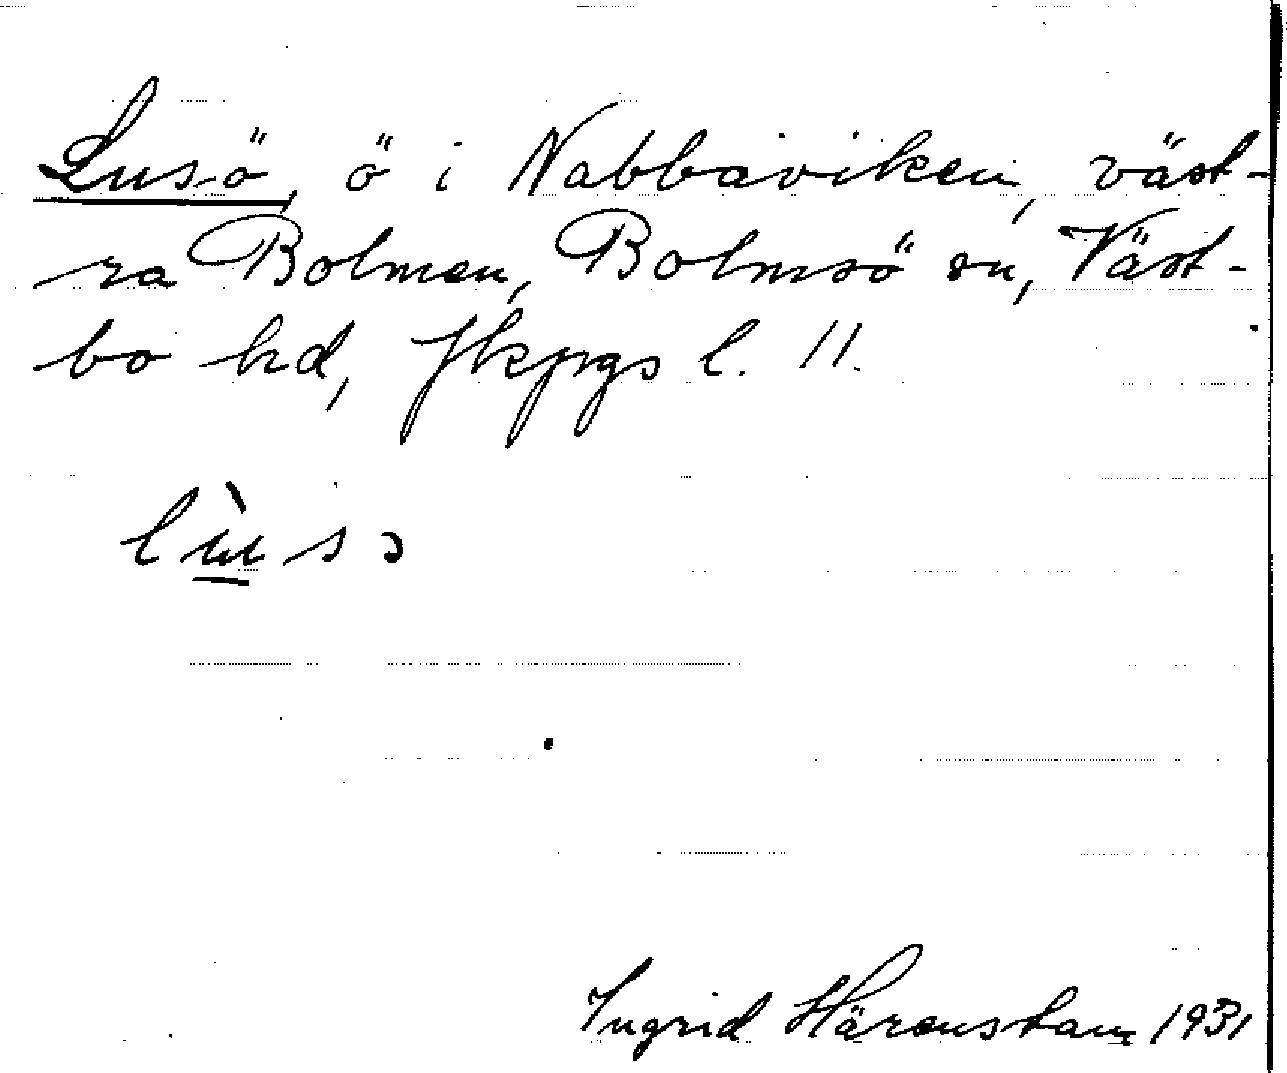 Lusö, ö i Nabbaviken, väst-
ra Bolmen, Bolmsö sn, Väst-
bo hd, Jkpgs l. 11.
Ingrid Härenstam 1931